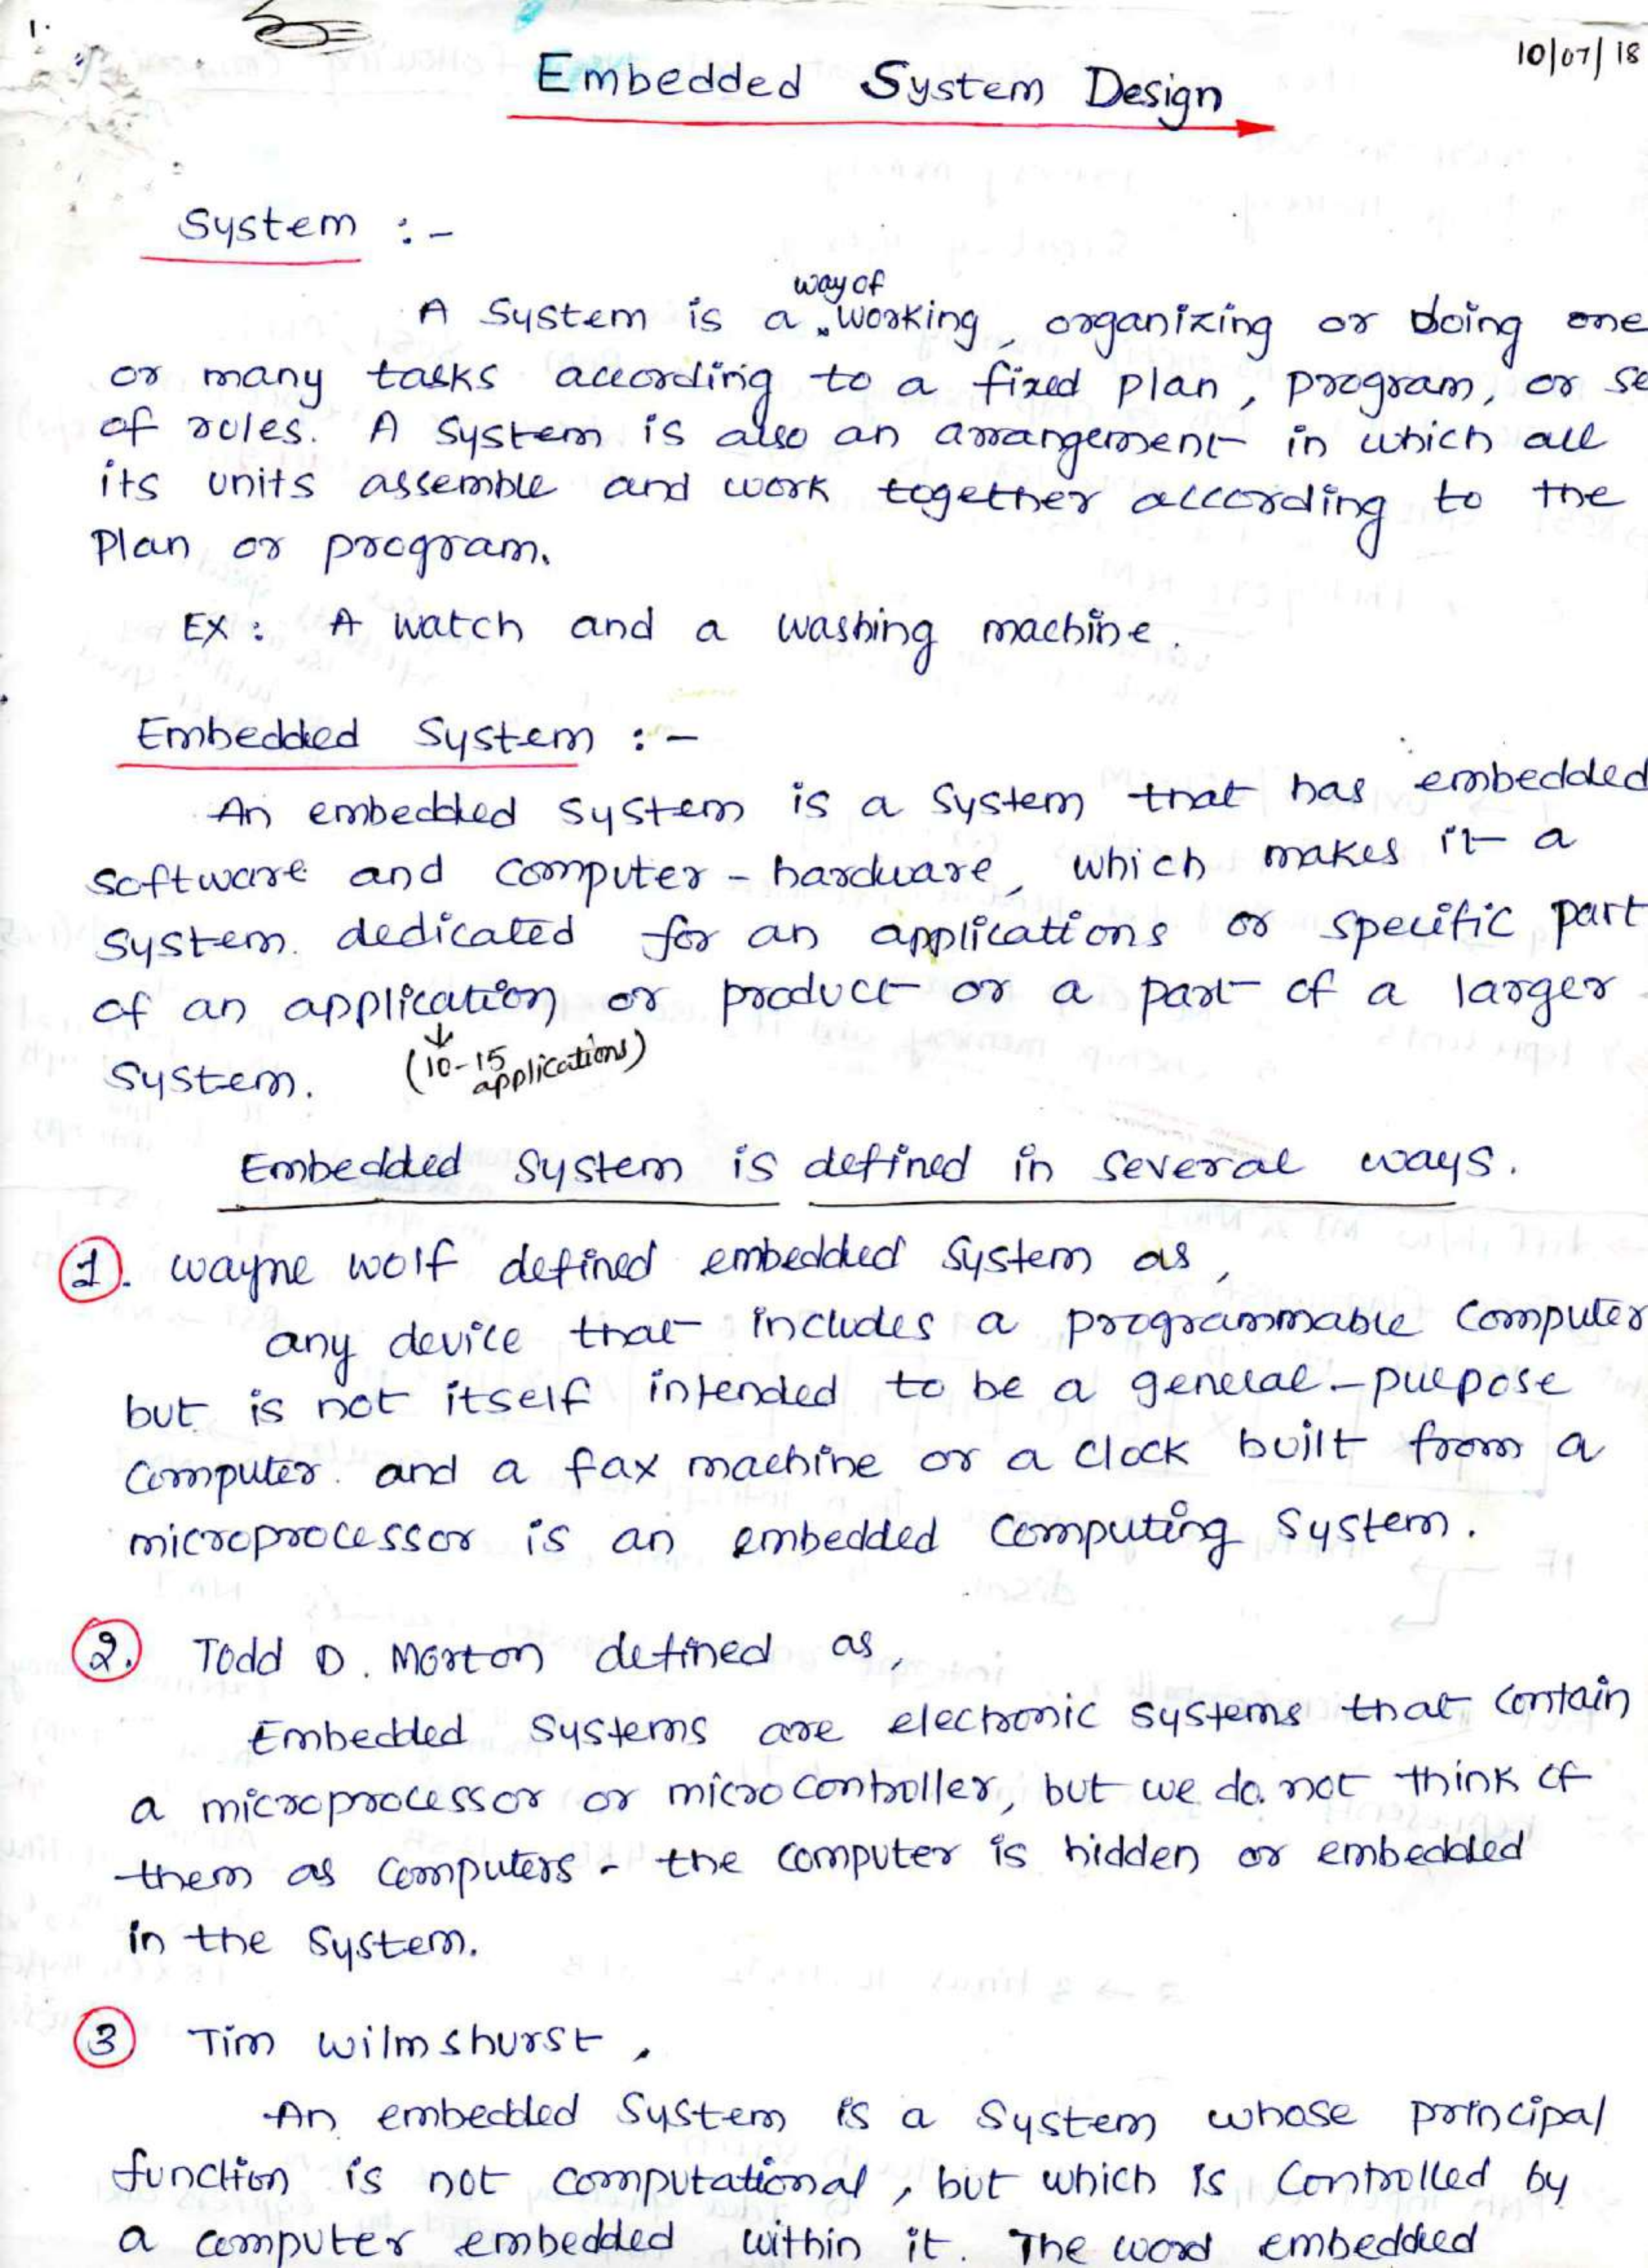 1.
10/07/18
Embedded System Design
System :-
way of
A System is a working, organizing or doing one
or many tasks according to a fixed plan, program, or se
of rules. A system is also an arrangement in which all
its units assemble and work together according to the
Plan or program.
EX: A watch and a washing machine.
Embedded System :-
An embedded system is a system that has embedded
software and computer-hardware, which makes it a
system dedicated for an applications or specific part
of an application or product or a part of a larger
System. (10-15 applications)
Embedded System is defined in several ways.
1. Wayne wolf defined embedded system as,
any device that includes a programmable computer
but is not itself intended to be a general-purpose
computer. and a fax machine or a clock built from a
microprocessor is an embedded computing system.
2. Todd D. Morton defined as,
Embedded systems are electronic systems that contain
a microprocessor or microcontroller, but we do not think of
them as computers - the computer is hidden or embedded
in the system.
3 Tim wilmshurst,
An embedded system is a system whose principal
function is not computational, but which is controlled by
a computer embedded within it. The word embedded